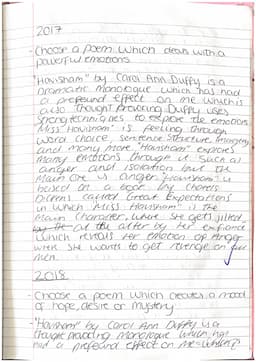 2017
- Choose a poem which deals with a
powerful emotions
"Havisham" by Carol Ann Duffy is a
Dramatic Monologue which has had
a profound effect on me which is
also thought provoking Duffy uses
strong techniques to explore the emotions
Miss "Havisham" is feeling through
word choice, sentence structure, imagery
and many more. "Havisham" explores
many emotions through it such as
anger and isolation but the
main one is anger. "Havisham" is
based on a book by Charels
Dickens called Great Expectations
in which Miss Havisham is the
main character, where she gets jilted
at the alter by her
which reveals her emotion of Anger
she wants to get revenge on
men.
2018
- Choose a poem which creates a mood
of hope, desire or mystery
- "Havisham" by Carol Ann Duffy is a
thought provoking monologue which has
had a profound effect on me which